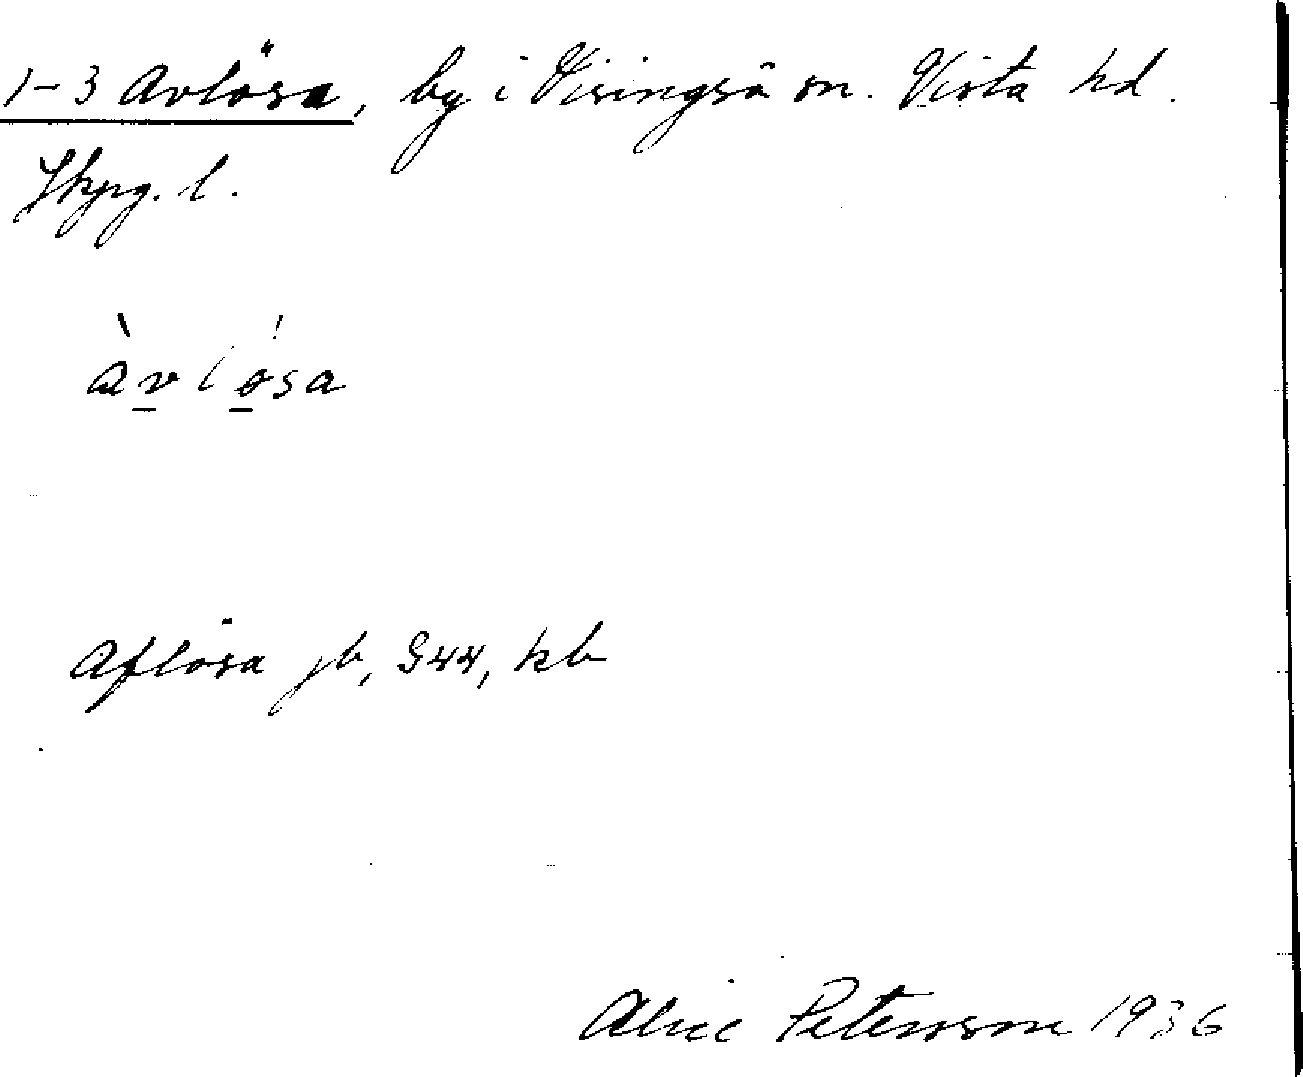 1-3 Avlösa, by i Visingsö sn. Vista hd.
Jkpg. l.
àvlǿsa
Aflösa jb, G44, kb
Alice Petersson 1936